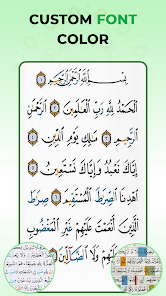 CUSTOM FONT
COLOR
بِسْمِ ٱللَّهِ ٱلرَّحْمَٰنِ ٱلرَّحِيمِ ١
ٱلْحَمْدُ لِلَّهِ رَبِّ ٱلْعَٰلَمِينَ ٢ ٱلرَّحْمَٰنِ
ٱلرَّحِيمِ ٣ مَٰلِكِ يَوْمِ ٱلدِّينِ ٤
إِيَّاكَ نَعْبُدُ وَإِيَّاكَ نَسْتَعِينُ ٥
ٱهْدِنَا ٱلصِّرَٰطَ ٱلْمُسْتَقِيمَ ٦ صِرَٰطَ
ٱلَّذِينَ أَنْعَمْتَ عَلَيْهِمْ غَيْرِ ٱلْمَغْضُوبِ
عَلَيْهِمْ وَلَا ٱلضَّآلِّينَ ٧